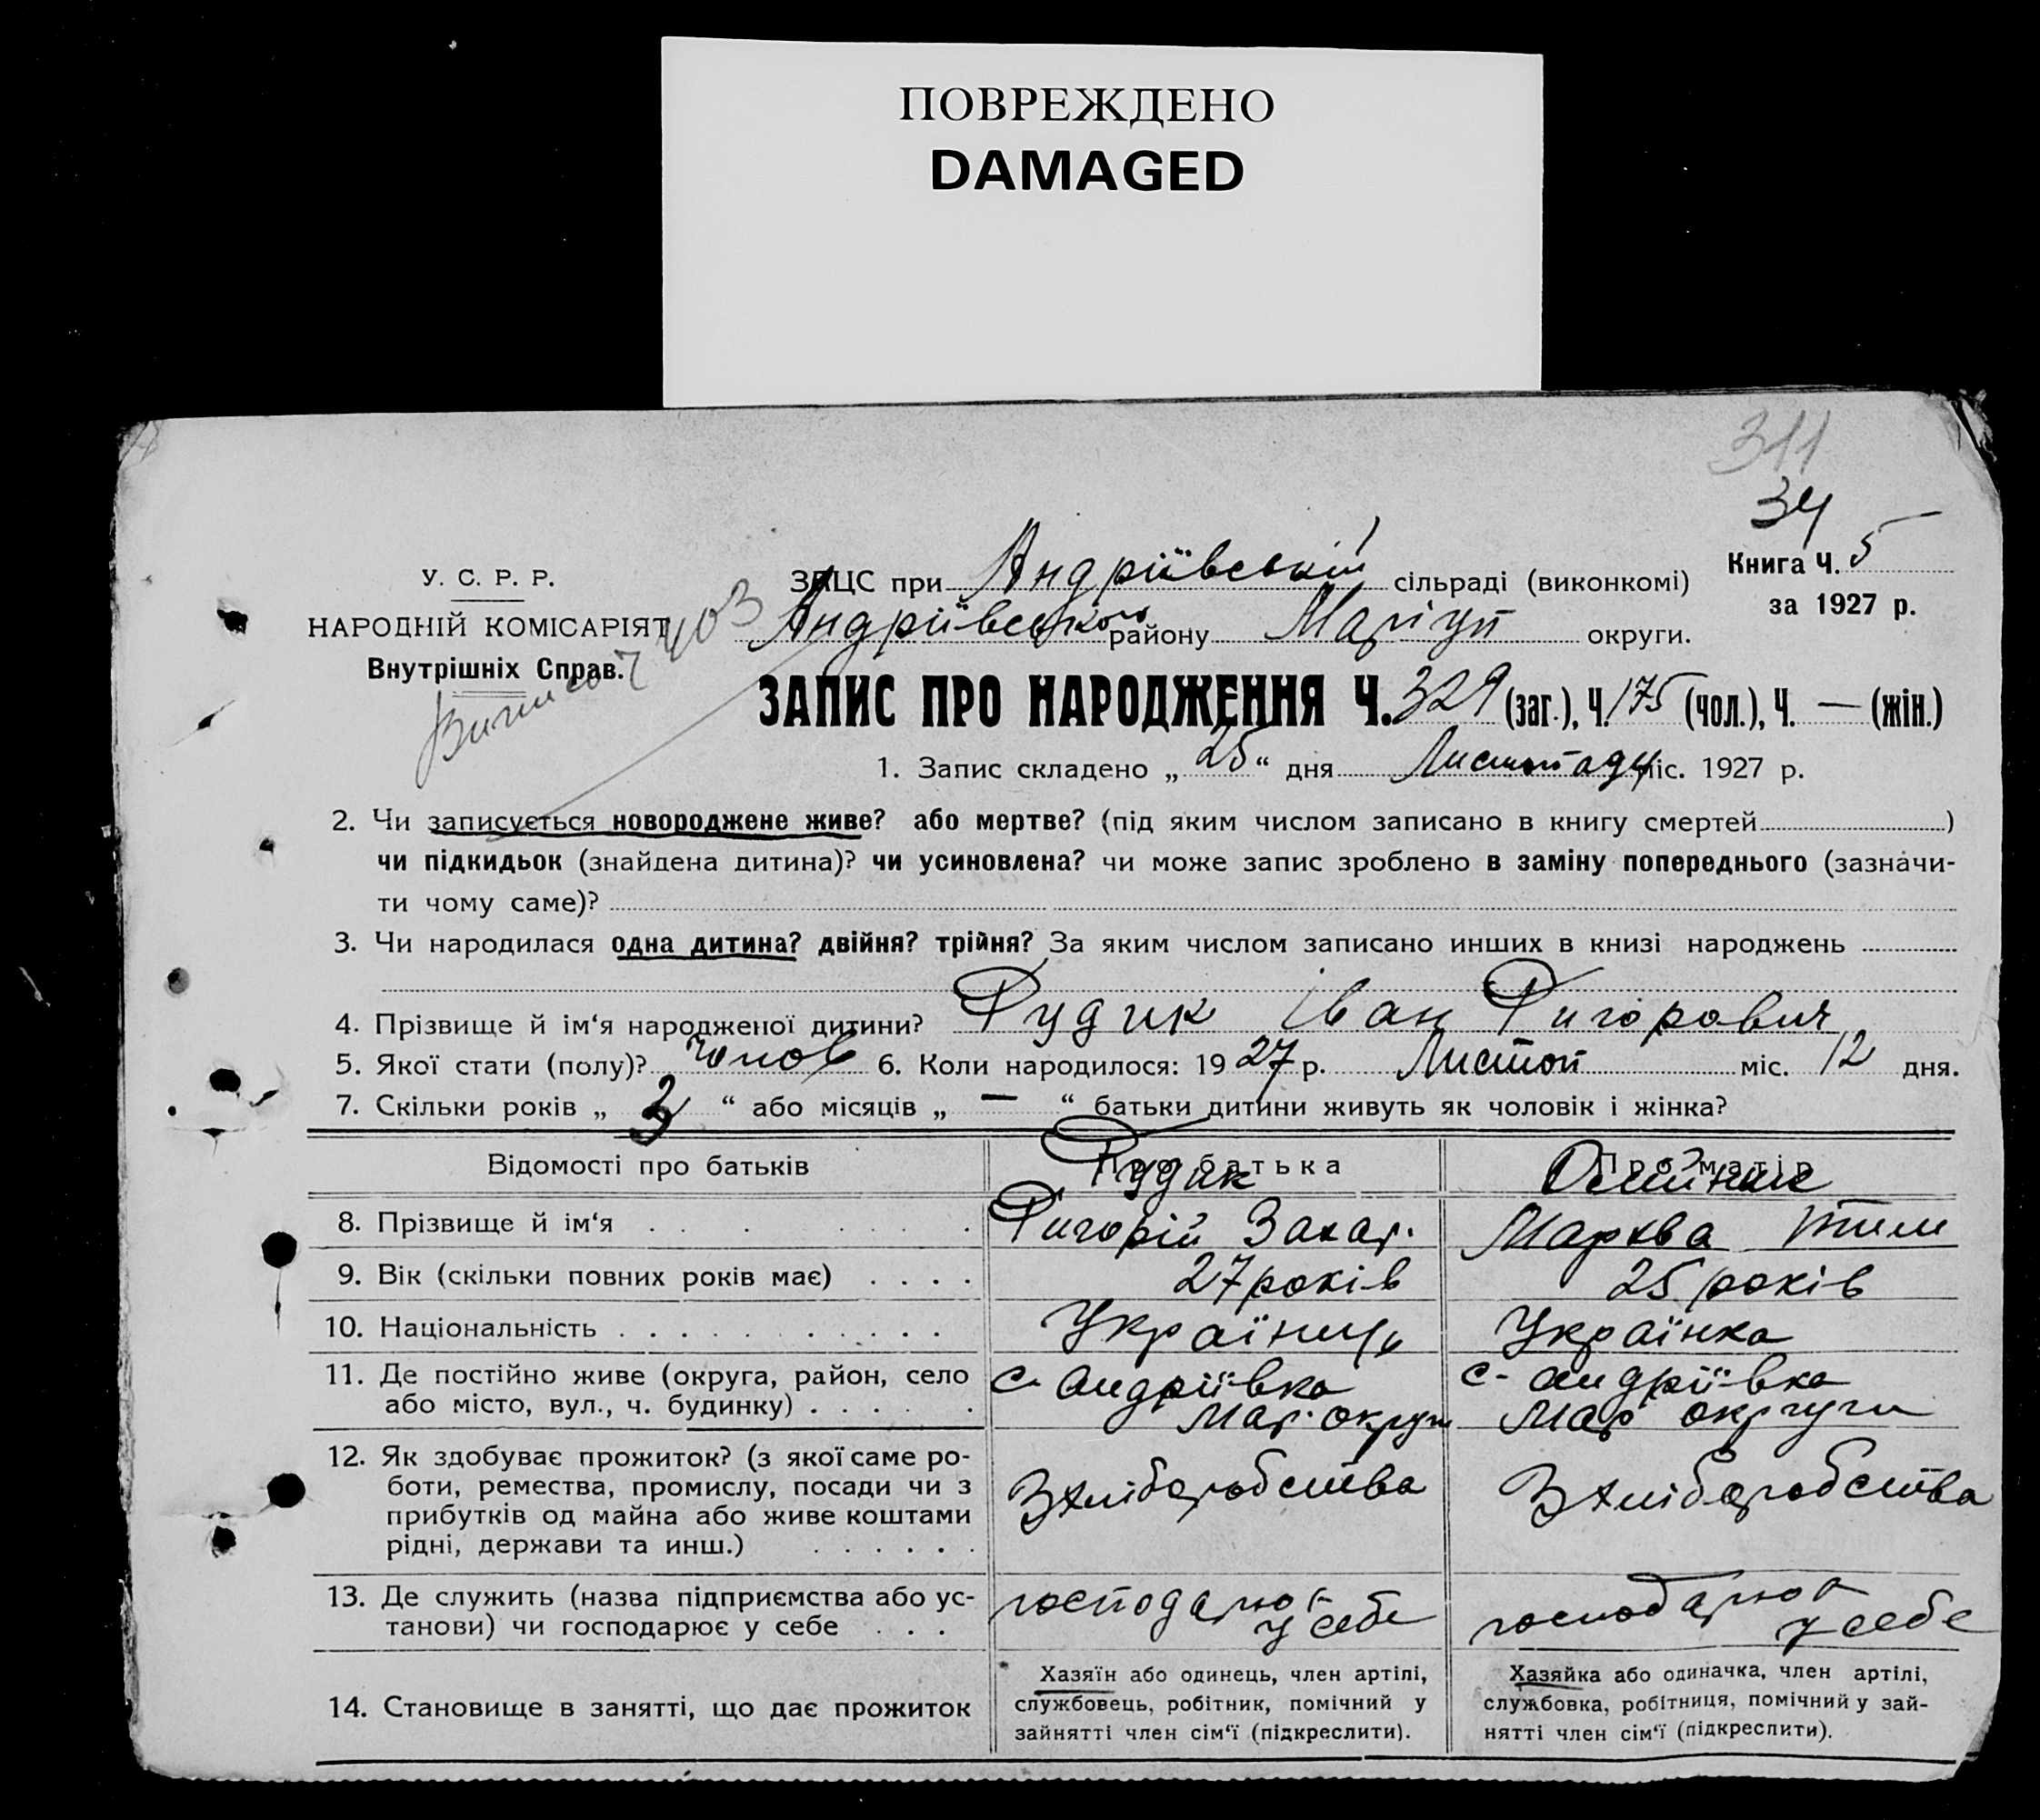 ПОВРЕЖДЕНО
DAMAGED
311
34
Книга Ч. 5
за 1927 р.
У. С. Р. Р.
НАРОДНІЙ КОМІСАРІЯТ
Внутрішніх Справ.
403
ЗАЦС при Андріївській сільраді (виконкомі)
Андріївського району Маріуп округи.
ЗАПИС ПРО НАРОДЖЕННЯ Ч. 329 (заг.), Ч. 175 (чол.), Ч. — (жін.)
1. Запис складено „ 25 “ дня Листопаду міс. 1927 р.
2. Чи записується новороджене живе? або мертве? (під яким числом записано в книгу смертей )
чи підкидьок (знайдена дитина)? чи усиновлена? чи може запис зроблено в заміну попереднього (зазначи-
ти чому саме)?
3. Чи народилася одна дитина? двійня? трійня? За яким числом записано инших в книзі народжень
4. Прізвище й ім‘я народженої дитини? Рудик Іван Григорович
5. Якої стати (полу)? чолов 6. Коли народилося: 1927 р. Листоп міс. 12 дня.
7. Скільки років „ 3 “ або місяців „ — “ батьки дитини живуть як чоловік і жінка?
Відомості про батьків Про батька Про матір
8. Прізвище й ім‘я Рудик Григорій Захар. Олейник Тим
9. Вік (скільки повних років має) 27 років 25 років
10. Національність Українець Українка
11. Де постійно живе (округа, район, село
або місто, вул., ч. будинку)
с. Андріївка
Мар. округи
с. Андріївка
Мар округи
12. Як здобуває прожиток? (з якої саме ро-
боти, ремества, промислу, посади чи з
прибутків од майна або живе коштами
рідні, держави та инш.)
З хліборобства
З хліборобства
13. Де служить (назва підприємства або ус-
танови) чи господарює у себе
господарює
у себе
господарює
у себе
14. Становище в занятті, що дає прожиток
Хазяїн або одинець, член артілі,
службовець, робітник, помічний у
зайнятті член сім‘ї (підкреслити).
Хазяйка або одиначка, член артілі,
службовка, робітниця, помічний у зай-
нятті член сім‘ї (підкреслити).